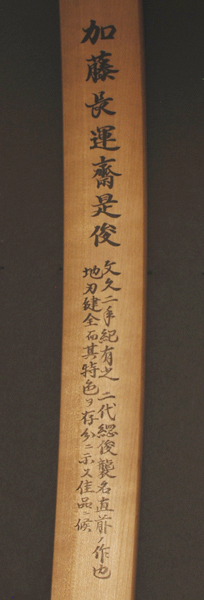 加藤長運齋是俊
文久二年紀有之 二代綱俊襲名直前ノ作也
地刃健全而其特色ヲ存分ニ示ス佳品ニ候